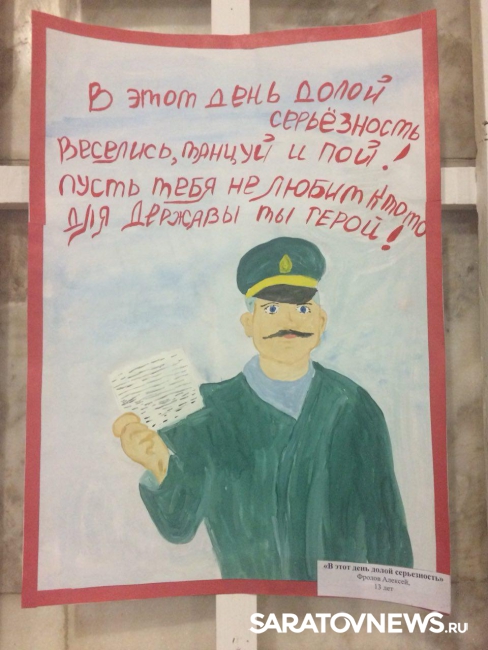 В этот день долой
серьёзность
Веселись, танцуй и пой!
Пусть тебя не любит кто то
для державы ты герой!
«В этот день долой серьезность»
Фролов Алексей,
13 лет
SARATOVNEWS.RU